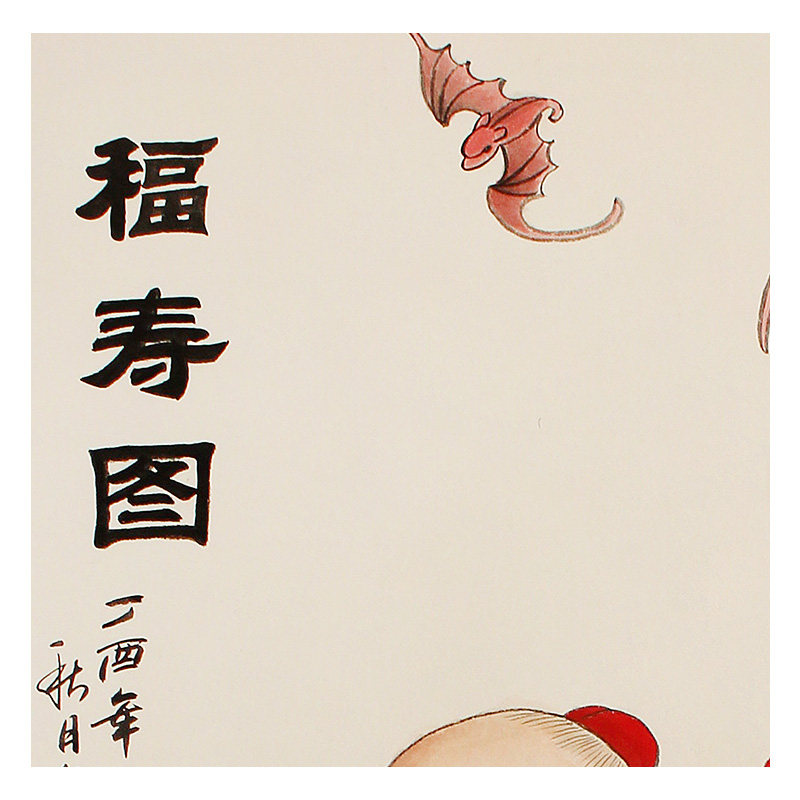 福寿图
丁酉年
秋月